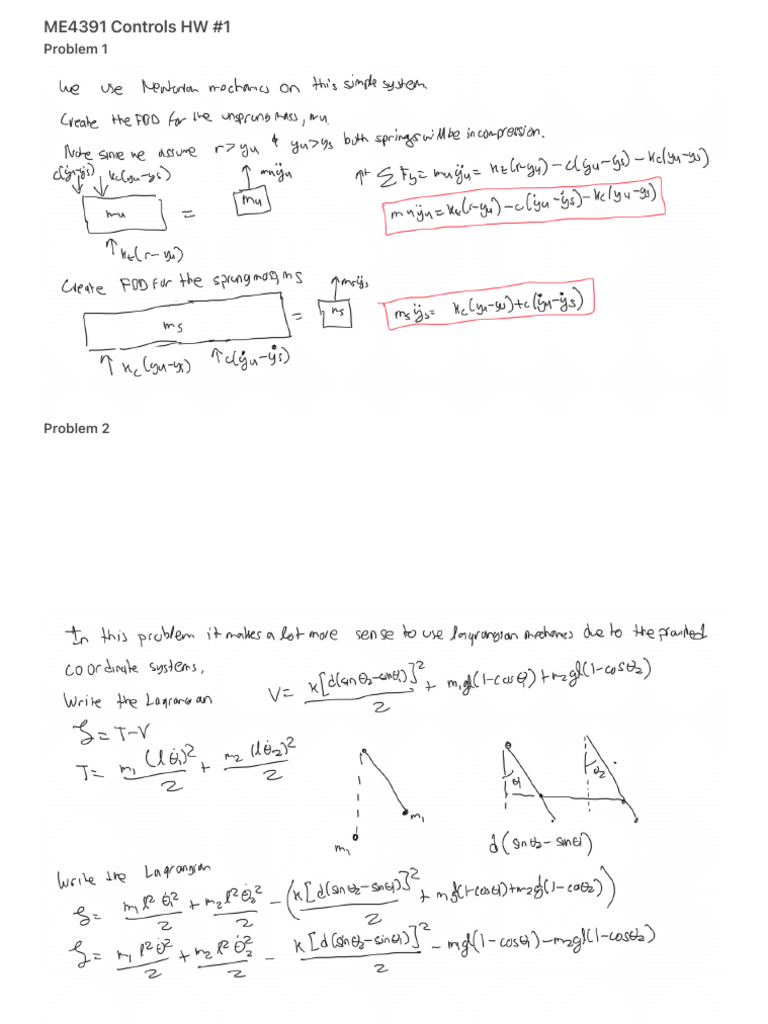 ME4391 Controls HW #1
Problem 1
We use Newtonian mechanics on this simple system.
Create the FBD for the unsprung mass, mu.
Note since we assume r > yu & yu > ys both springs will be in compression.
c(ẏu-ẏs) kc(yu-ys)
mu = mu müu
kt(r-yu)
↑+ ΣFy = muÿu = kt(r-yu) - c(ẏu-ẏs) - kc(yu-ys)
muÿu = kt(r-yu) - c(ẏu-ẏs) - kc(yu-ys)
Create FBD for the sprung mass, ms
ms = ms msÿs
kc(yu-ys) c(ẏu-ẏs)
msÿs = kc(yu-ys) + c(ẏu-ẏs)
Problem 2
In this problem it makes a lot more sense to use lagrangian mechanics due to the provided
coordinate systems,
Write the Lagrangian
V = k[d(sinθ2-sinθ1)]²/2 + m1gl(1-cosθ1) + m2gl(1-cosθ2)
L = T-V
T = m1(lθ̇1)²/2 + m2(lθ̇2)²/2
m1
m1
θ1
θ2
d(sinθ2-sinθ1)
Write the Lagrangian
L = m1l²θ̇1²/2 + m2l²θ̇2²/2 - (k[d(sinθ2-sinθ1)]²/2 + m1gl(1-cosθ1) + m2gl(1-cosθ2))
L = m1l²θ̇1²/2 + m2l²θ̇2²/2 - k[d(sinθ2-sinθ1)]²/2 - m1gl(1-cosθ1) - m2gl(1-cosθ2)